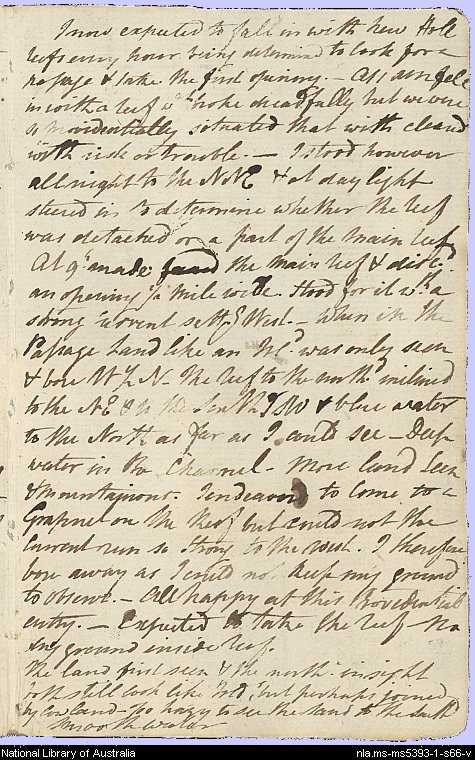 I now expected to fall in with New Holl
reefs every hour being determind to look for a
passage & take the first opening. — At 1 am fell
in with a reef wch broke dreadfully but we were
so providentially situated that with cleard
with risk or trouble. — I stood however
all night to the NNE & at day light
steered in to determine whether the reef
was detached or a part of the main reef
At 9h made the main reef & discd
an opening 1/4 mile wide. Stood for it wh a
strong current settg West. — When in the
Passage Land like an Isld was only seen
& bore WbN — The reef to the northd inclined
to the NE & to the South SSW & blue water
to the North as far as I could see — Deep
water in the Channel. More land seen
& Mountainous. I endeavord to come to a
Grapnel on the Reef but could not the
Current run so strong to the West. I therefore
bore away as I could not keep my ground
to observe. — All happy at this Providential
entry. — Expected to take the reef no
ground inside reef.
The land first seen & the northn in sight
both still look like Isld, but perhaps joined
by low land — too hazy to see the land to the South
Smooth water
National Library of Australia
nla.ms-ms5393-1-s66-v